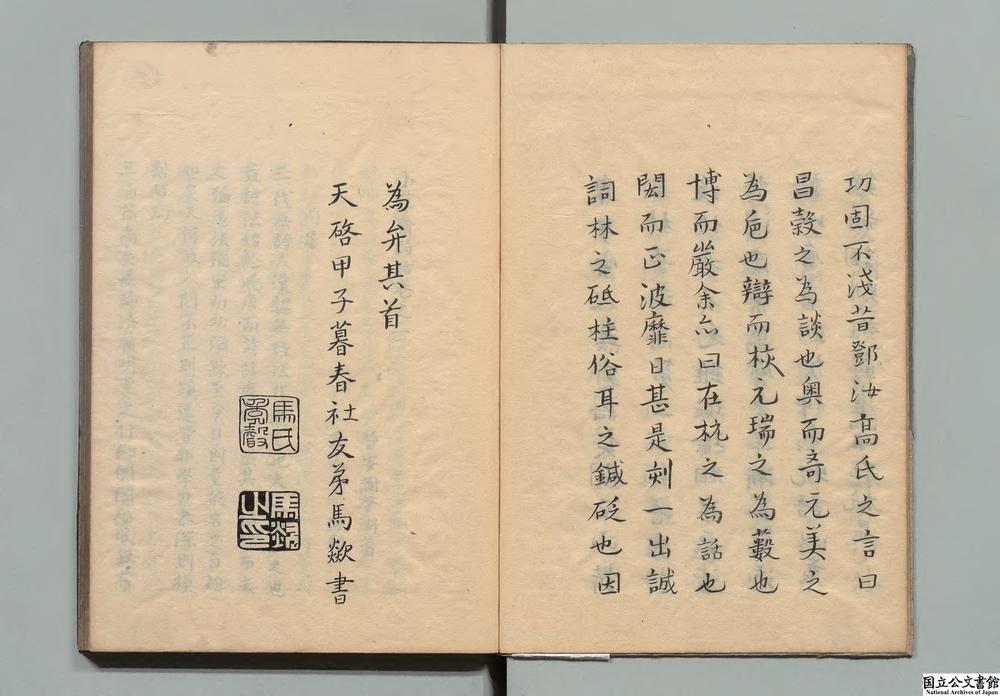 功固不淺昔鄧汝高氏之言曰
昌穀之為談也奥而奇元美之
為巵也辯而核元瑞之為藪也
博而巖余亦曰在杭之為話也
閎而正波靡日甚是刻一出誠
詞林之砥柱俗耳之鍼砭也因
為弁其首
天啓甲子暮春社友弟馬歘書
馬氏
季聲
馬歘
之印
国立公文書館
National Archives of Japan